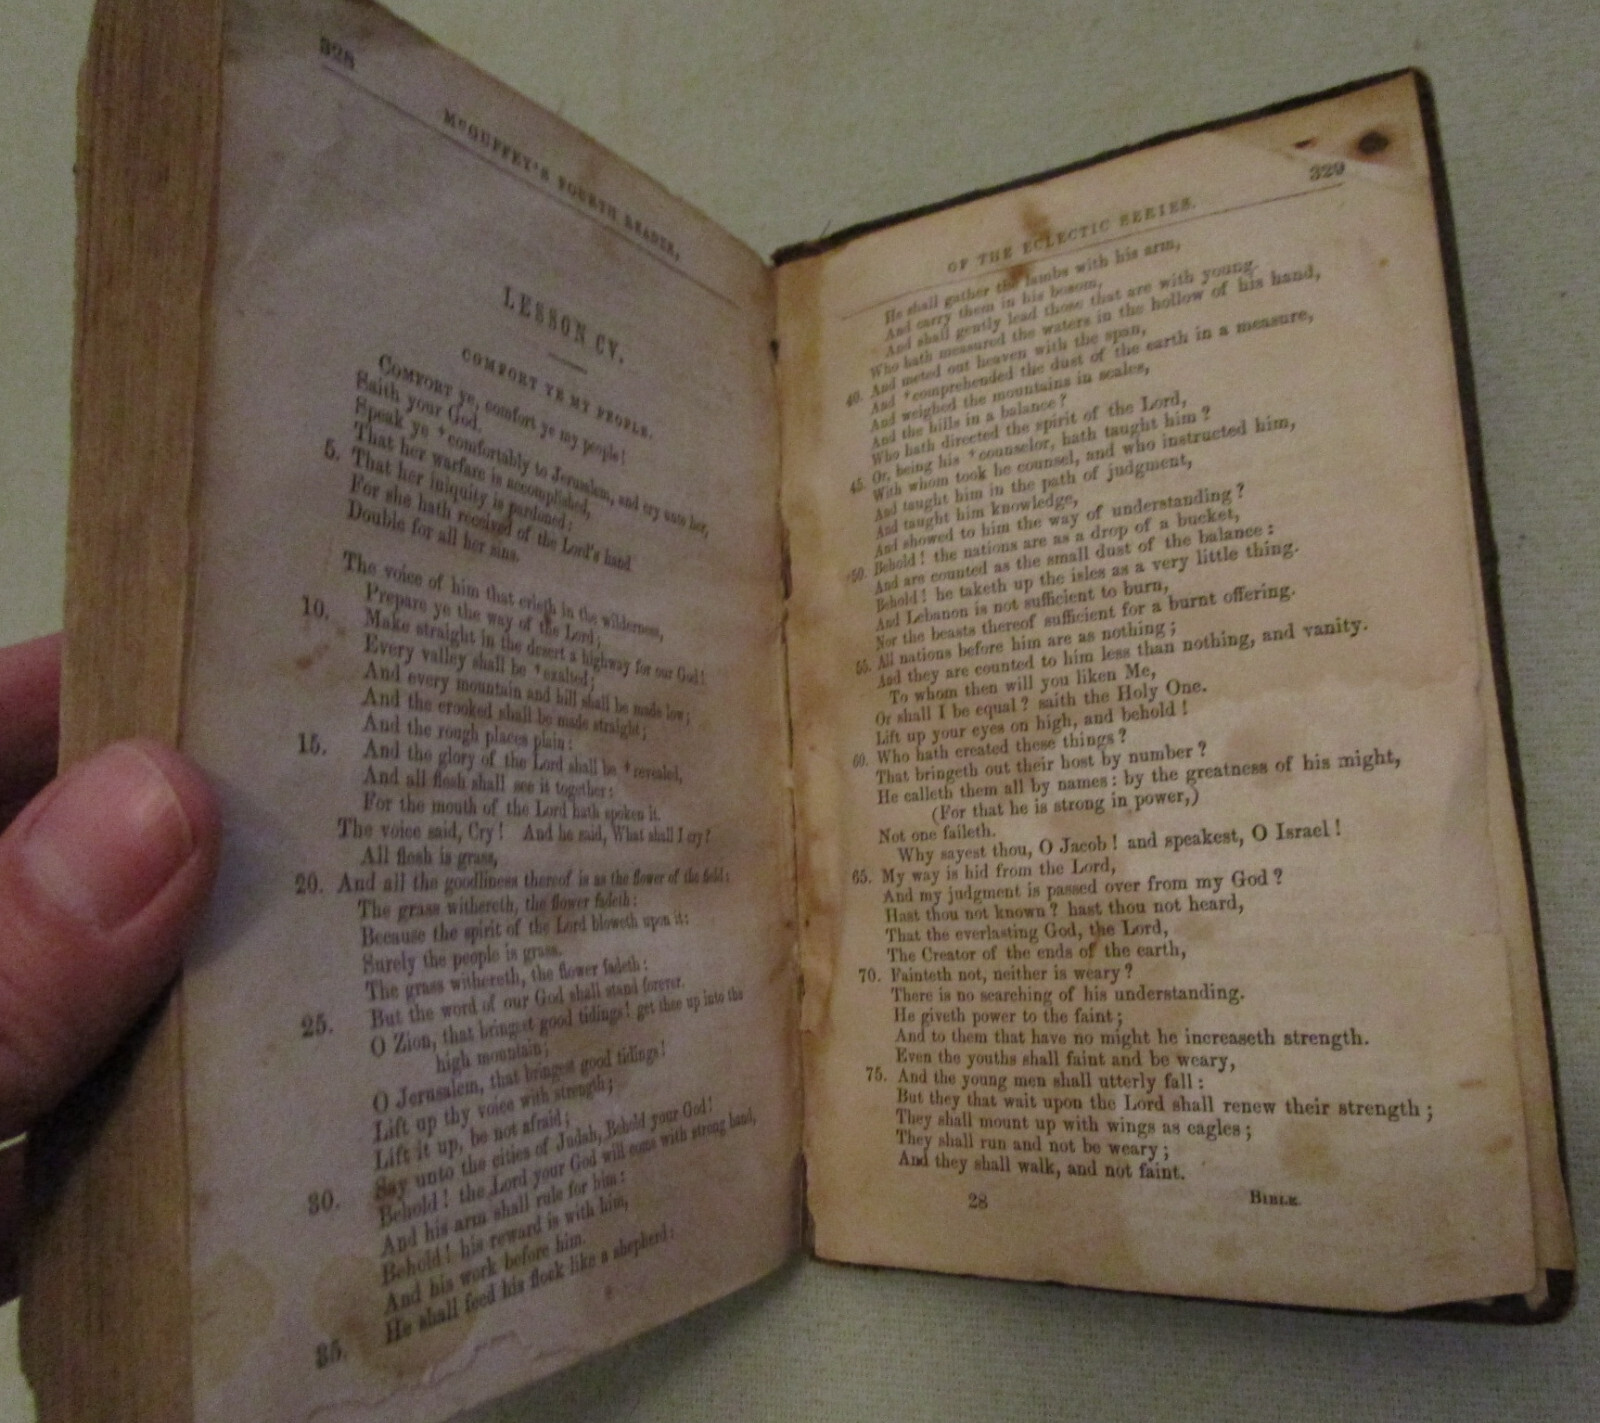 328
McGUFFEY'S FOURTH READER,
LESSON CV.
COMFORT YE MY PEOPLE.
COMFORT ye, comfort ye my people!
Saith your God.
Speak ye +comfortably to Jerusalem, and cry unto her,
That her warfare is accomplished,
5. That her iniquity is pardoned:
For she hath received of the Lord's hand
Double for all her sins.
The voice of him that crieth in the wilderness,
Prepare ye the way of the Lord;
10. Make straight in the desert a highway for our God!
Every valley shall be +exalted;
And every mountain and hill shall be made low;
And the crooked shall be made straight;
And the rough places plain:
15. And the glory of the Lord shall be +revealed,
And all flesh shall see it together:
For the mouth of the Lord hath spoken it.
The voice said, Cry! And he said, What shall I cry?
All flesh is grass,
20. And all the goodliness thereof is as the flower of the field:
The grass withereth, the flower fadeth:
Because the spirit of the Lord bloweth upon it:
Surely the people is grass.
The grass withereth, the flower fadeth:
25. But the word of our God shall stand forever.
O Zion, that bringest good tidings! get thee up into the
high mountain;
O Jerusalem, that bringest good tidings!
Lift up thy voice with strength;
Lift it up, be not afraid;
30. Say unto the cities of Judah, Behold your God!
Behold! the Lord your God will come with strong hand,
And his arm shall rule for him:
Behold! his reward is with him,
And his work before him.
35. He shall feed his flock like a shepherd:
329
OF THE ECLECTIC SERIES.
He shall gather the lambs with his arm,
And carry them in his bosom,
And shall gently lead those that are with young.
Who hath measured the waters in the hollow of his hand,
40. And meted out heaven with the span,
And +comprehended the dust of the earth in a measure,
And weighed the mountains in scales,
And the hills in a balance?
Who hath directed the spirit of the Lord,
45. Or, being his +counselor, hath taught him?
With whom took he counsel, and who instructed him,
And taught him in the path of judgment,
And taught him knowledge,
And showed to him the way of understanding?
50. Behold! the nations are as a drop of a bucket,
And are counted as the small dust of the balance:
Behold! he taketh up the isles as a very little thing.
And Lebanon is not sufficient to burn,
Nor the beasts thereof sufficient for a burnt offering.
55. All nations before him are as nothing;
And they are counted to him less than nothing, and vanity.
To whom then will you liken Me,
Or shall I be equal? saith the Holy One.
Lift up your eyes on high, and behold!
60. Who hath created these things?
That bringeth out their host by number?
He calleth them all by names: by the greatness of his might,
(For that he is strong in power,)
Not one faileth.
Why sayest thou, O Jacob! and speakest, O Israel!
65. My way is hid from the Lord,
And my judgment is passed over from my God?
Hast thou not known? hast thou not heard,
That the everlasting God, the Lord,
The Creator of the ends of the earth,
70. Fainteth not, neither is weary?
There is no searching of his understanding.
He giveth power to the faint;
And to them that have no might he increaseth strength.
Even the youths shall faint and be weary,
75. And the young men shall utterly fall:
But they that wait upon the Lord shall renew their strength;
They shall mount up with wings as eagles;
They shall run and not be weary;
And they shall walk, and not faint.
28 BIBLE.